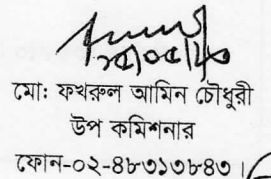 মো: ফখরুল আমিন চৌধুরী
উপ কমিশনার
ফোন-০২-৪৮৩১৩৮৪৩।